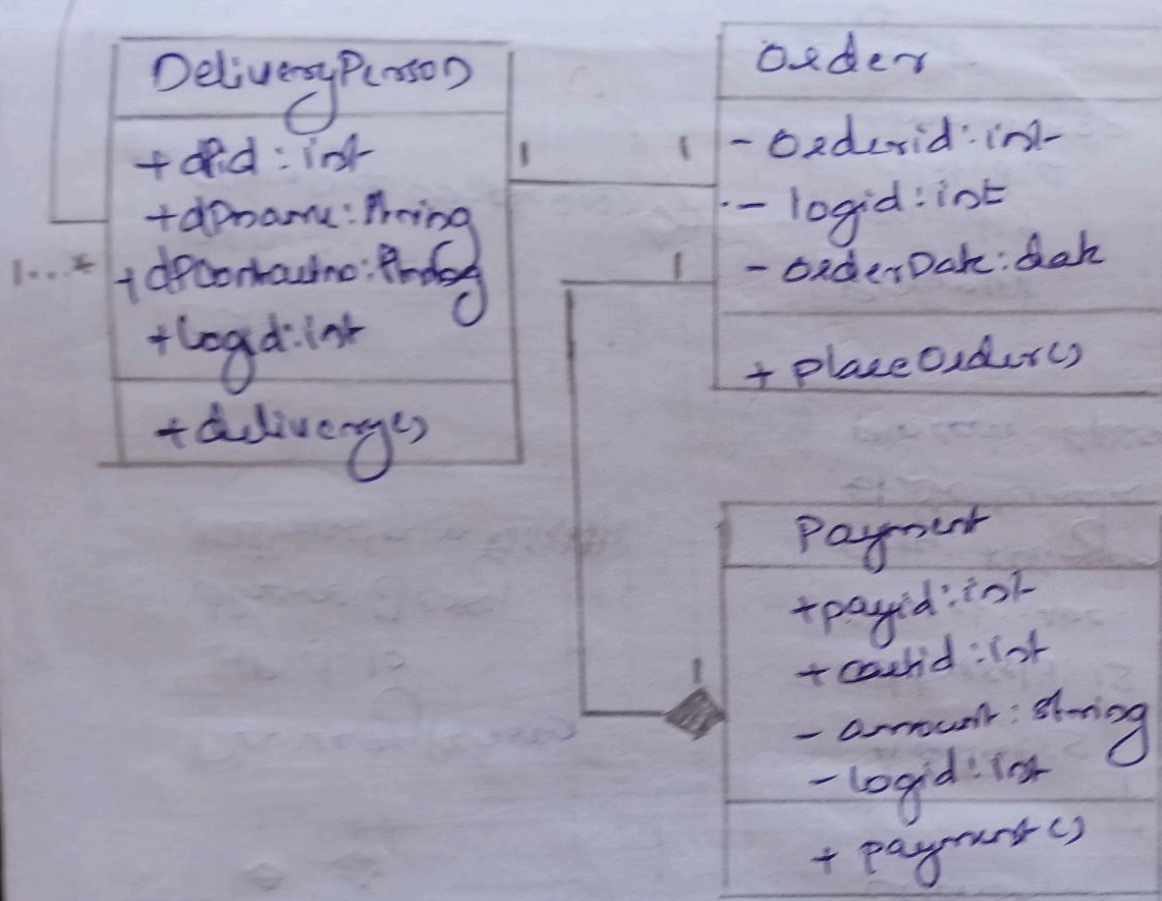 DeliveryPerson
+ dPid : int
+ dPname : String
1...*
+ dPContactno : String
+ logid : int
+ delivery()
1
1
Order
- Orderid : int
- logid : int
- OrderDate : date
+ PlaceOrder()
1
Payment
+ payid : int
+ cartid : int
- amount : String
- logid : int
+ payment()
1